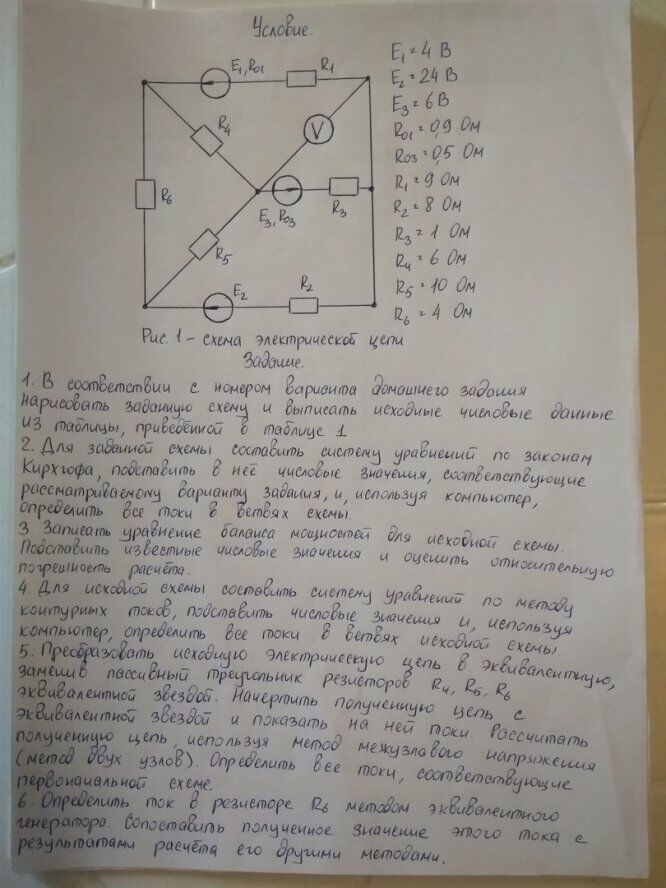 Условие.
E1, R01
R1
R4
V
R6
E3, R03
R3
R5
E2
R2
E1 = 4 В
E2 = 24 В
E3 = 6 В
R01 = 0,9 Ом
R03 = 0,5 Ом
R1 = 9 Ом
R2 = 8 Ом
R3 = 1 Ом
R4 = 6 Ом
R5 = 10 Ом
R6 = 4 Ом
Рис. 1 - схема электрической цепи
Задание.
1. В соответствии с номером варианта домашнего задания
нарисовать заданную схему и выписать исходные числовые данные
из таблицы, приведённой в таблице 1
2. Для заданной схемы составить систему уравнений по законам
Кирхгофа, подставить в неё числовые значения, соответствующие
рассматриваемому варианту задания, и, используя компьютер,
определить все токи в ветвях схемы.
3. Записать уравнение баланса мощностей для исходной схемы.
Подставить известные числовые значения и оценить относительную
погрешность расчёта.
4. Для исходной схемы составить систему уравнений по методу
контурных токов, подставить числовые значения и, используя
компьютер, определить все токи в ветвях исходной схемы.
5. Преобразовать исходную электрическую цепь в эквивалентную,
заменив пассивный треугольник резисторов R4, R5, R6
эквивалентной звездой. Начертить полученную цепь с
эквивалентной звездой и показать на ней токи. Рассчитать
полученную цепь, используя метод межузлового напряжения
(метод двух узлов). Определить все токи, соответствующие
первоначальной схеме.
6. Определить ток в резисторе R6 методом эквивалентного
генератора. Сопоставить полученное значение этого тока с
результатами расчёта его другими методами.